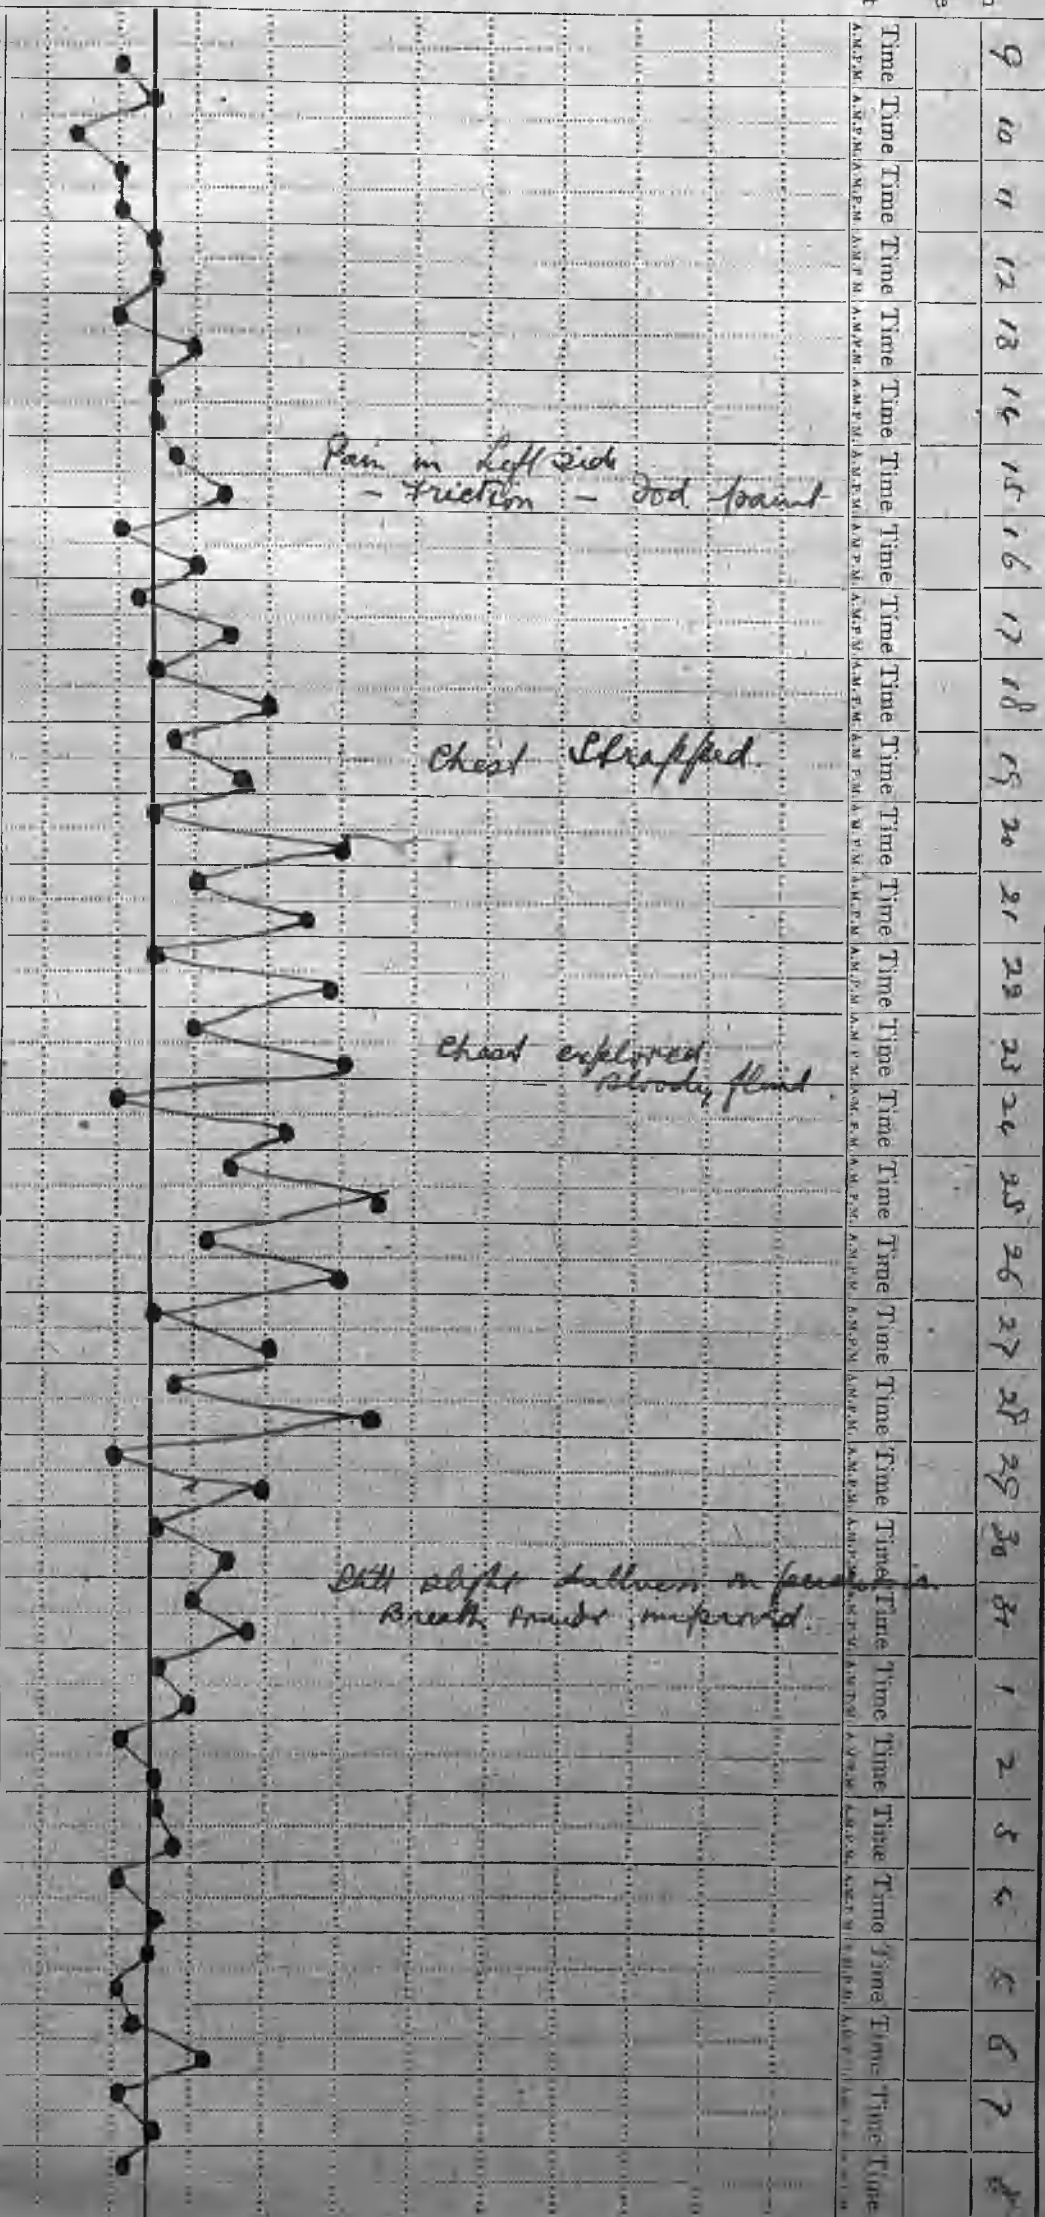 9 10 11 12 13 14 15 16 17 18 19 20 21 22 23 24 25 26 27 28 29 30 31 1 2 3 4 5 6 7 8
Time Time Time Time Time Time Time Time Time Time Time Time Time Time Time Time Time Time Time Time Time Time Time Time Time Time Time Time Time Time Time
A.M. P.M. A.M. P.M. A.M. P.M. A.M. P.M. A.M. P.M. A.M. P.M. A.M. P.M. A.M. P.M. A.M. P.M. A.M. P.M. A.M. P.M. A.M. P.M. A.M. P.M. A.M. P.M. A.M. P.M. A.M. P.M. A.M. P.M. A.M. P.M. A.M. P.M. A.M. P.M. A.M. P.M. A.M. P.M. A.M. P.M. A.M. P.M. A.M. P.M. A.M. P.M.
Pain in Left side
- Friction - Iod paint
Chest Strapped.
Chest explored
- Bloody fluid.
Still slight dullness on percussion
Breath sounds improved.